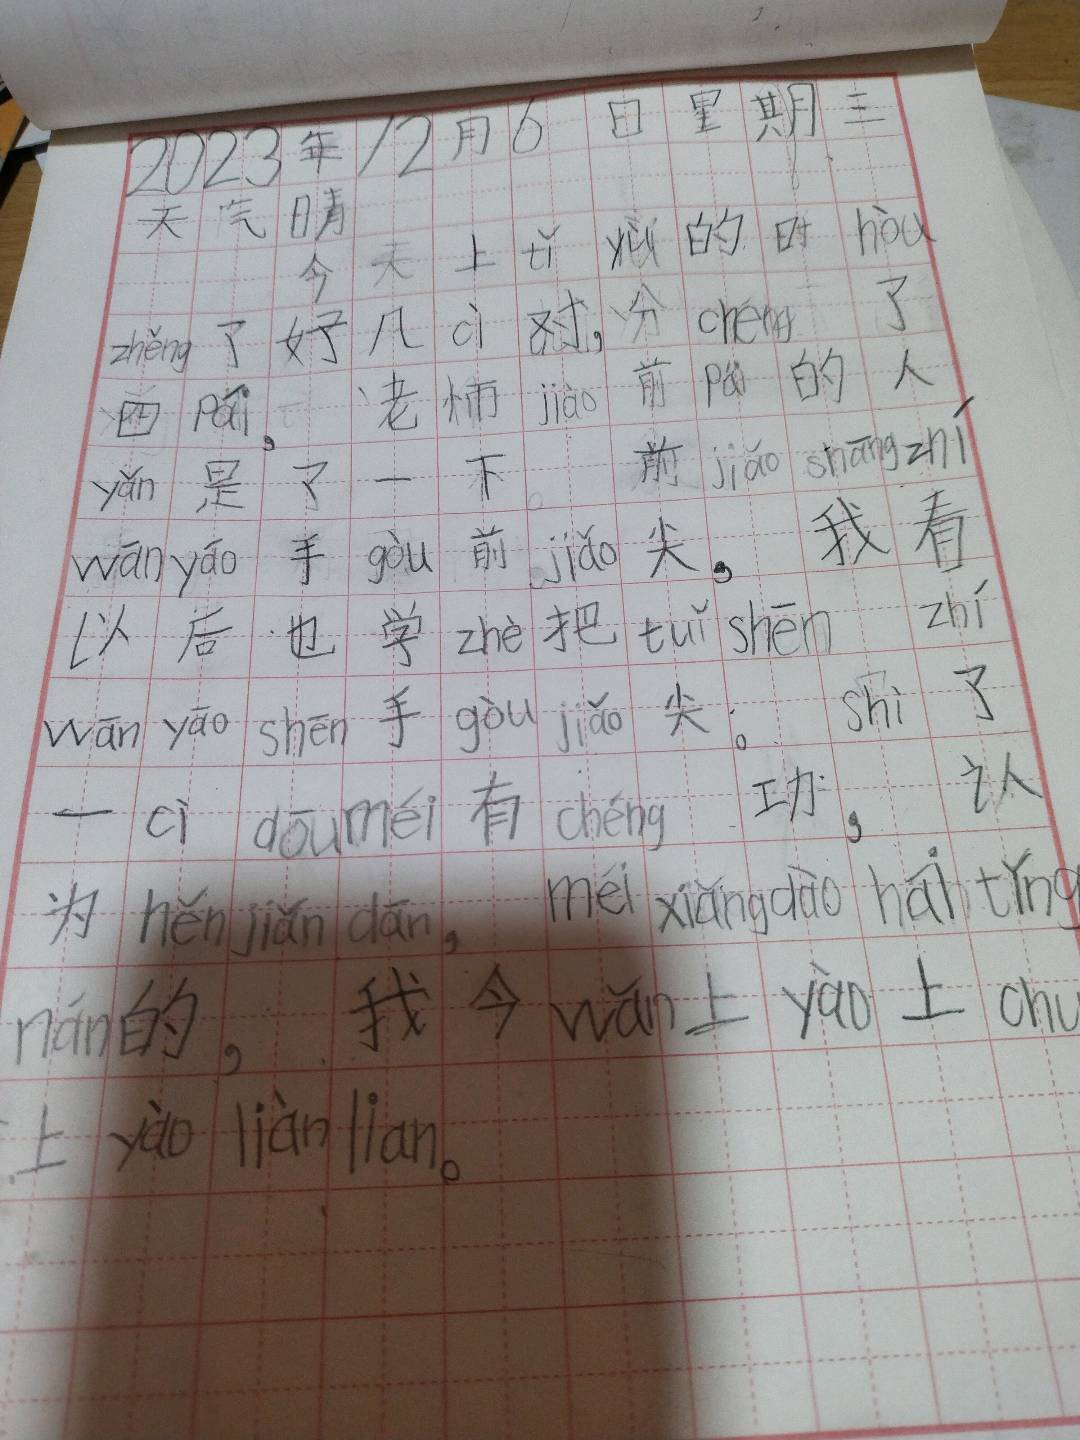 2023年12月6日星期三
天汽晴
今天上tǐ yù的时hòu
zhěng了好几cì对,分chéng了
四pái,老师jiào前pái的人
yǎn是了一下。前jiǎo shāng zhí
wān yāo手gòu前jiǎo尖,我看
以后也学zhè把tuǐ shēn zhí
wān yāo shēn手gòu jiǎo尖。shì了
一cì dōu méi有chéng功,认
为hěn jiǎn dān,méi xiǎng dào hái tǐng
nán的,我今wǎn上yào上chu
上yào liàn lian。